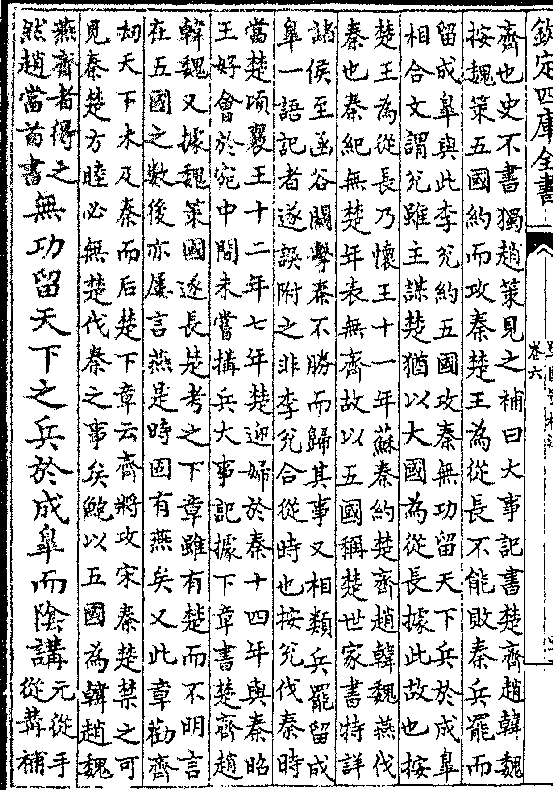 欽定四庫全書
卷六
齊也史不書獨趙策見之補曰大事記書楚齊趙韓魏
按魏策五國約而攻秦楚王為從長不能敗秦兵罷而
留成臯與此李兌約五國攻秦無功留天下兵於成臯
相合文謂兌雖主謀楚猶以大國為從長據此故也按
楚王為從長乃懷王十一年蘇秦約楚齊趙韓魏燕伐
秦也秦紀無楚年表無齊故以五國稱楚世家書特詳
諸侯至函谷關擊秦不勝而歸其事又相類兵罷留成
臯一語記者遂誤附之非李兌合從時也按兌伐秦時
當楚頃襄王十二年七年楚迎婦於秦十四年與秦昭
王好會於宛中間未嘗搆兵大事記據下章書楚齊趙
韓魏又據魏策國遂長楚考之下章雖有楚而不明言
在五國之數後亦屢言燕是時固有燕矣又此章勸齊
劫天下木及秦而后楚下章云齊將攻宋秦楚禁之可
見秦楚方睦必無楚伐秦之事矣鮑以五國為韓趙魏
燕齊者得之
然趙當首書
無功留天下之兵於成臯而陰講
元從手
從冓補